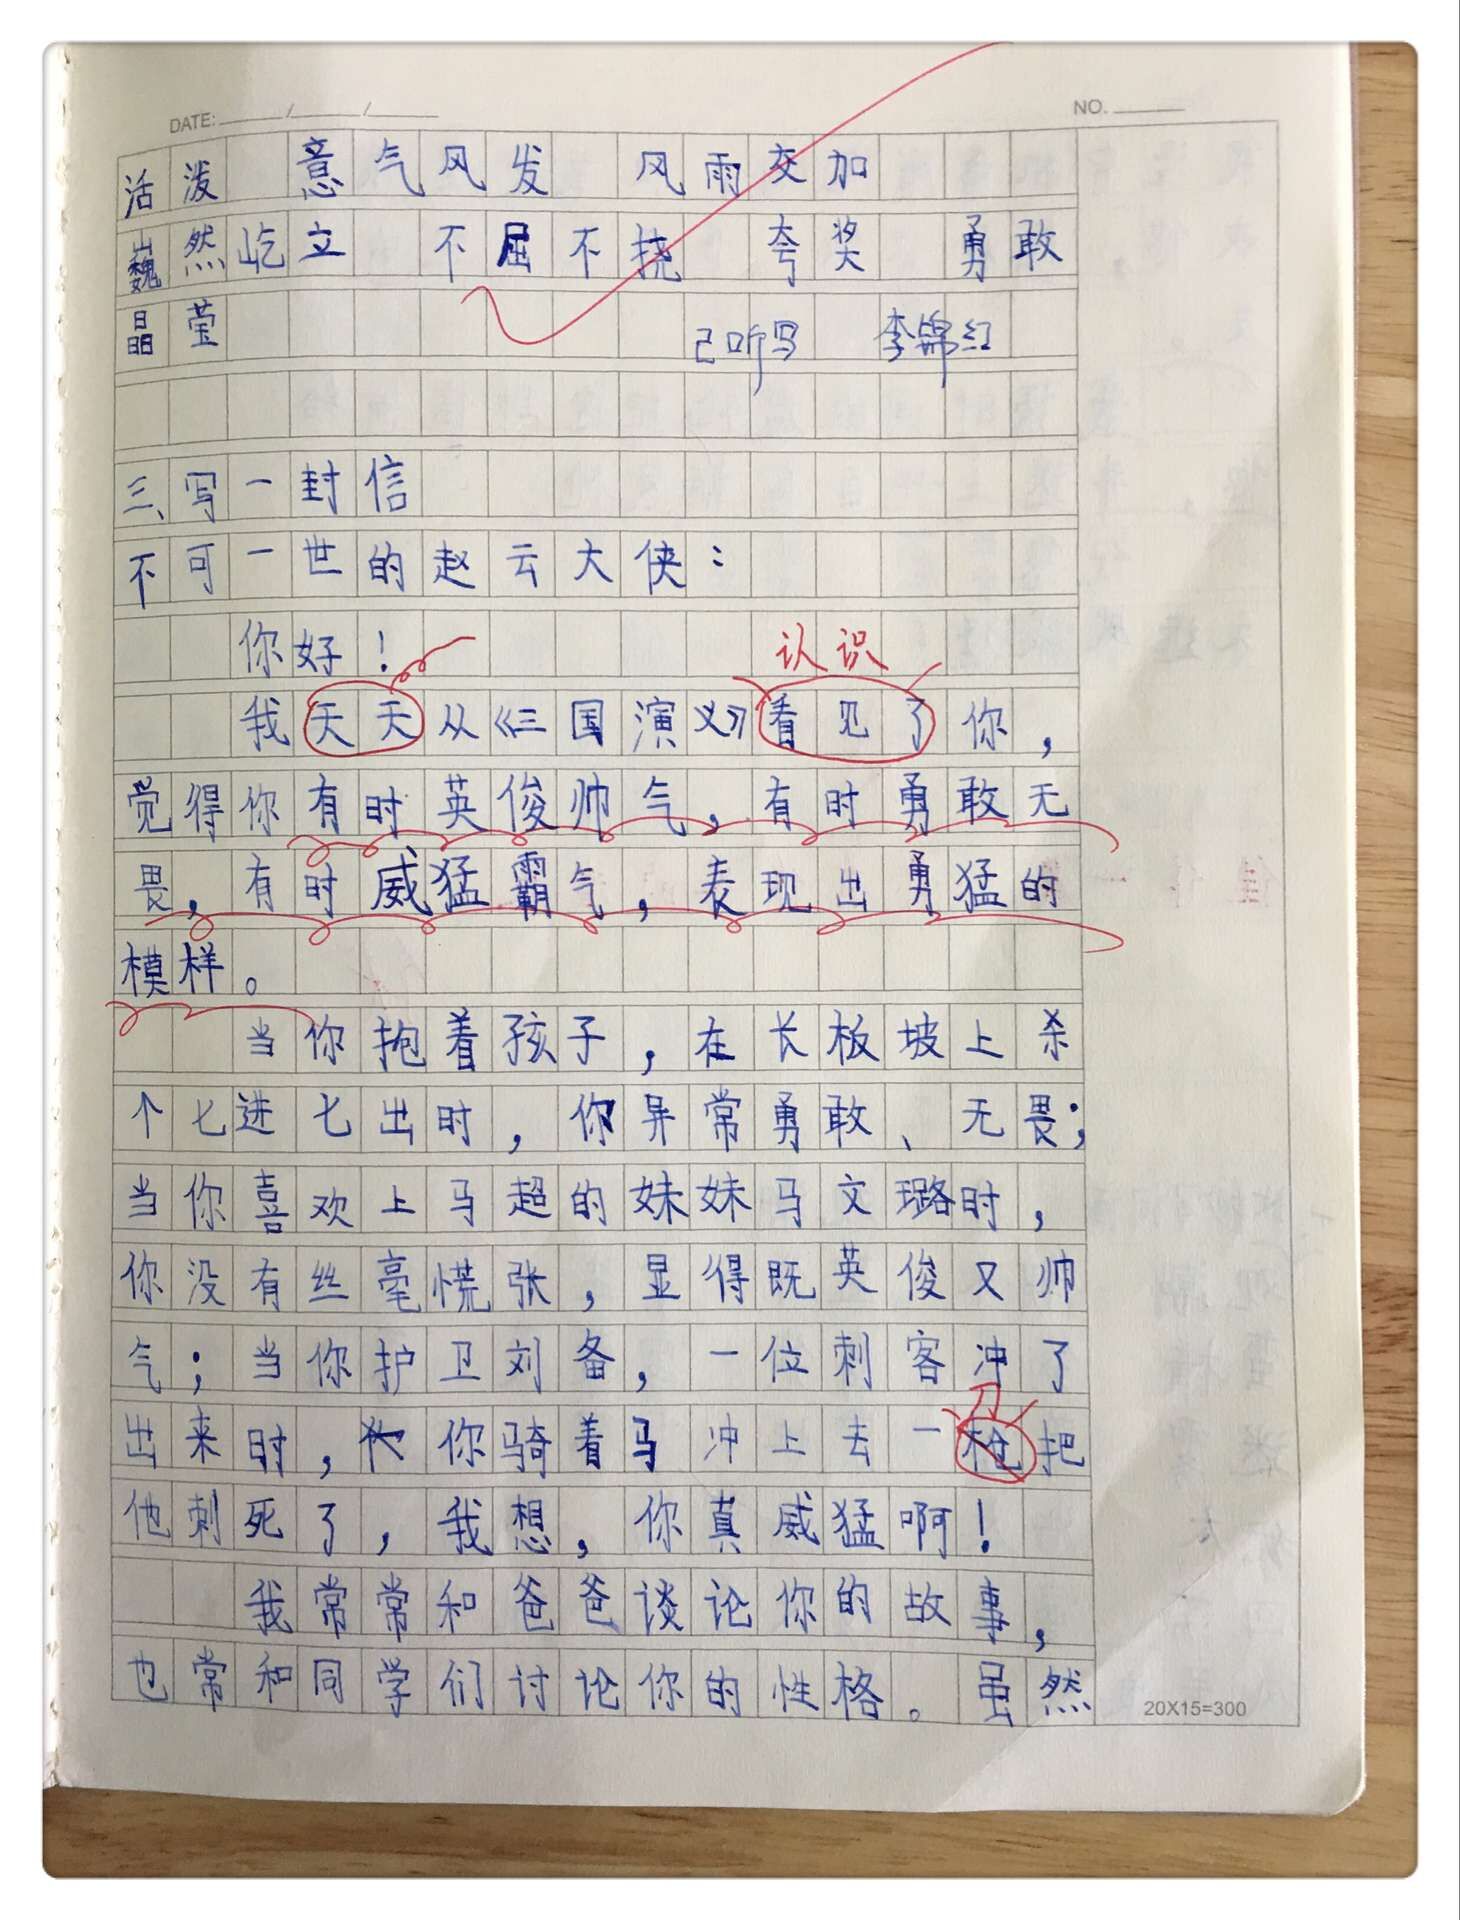 DATE: / / NO.
活泼 意气风发 风雨交加
巍然屹立 不屈不挠 夸奖 勇敢
晶莹 已听写 李锦红
三、写一封信
不可一世的赵云大侠：
你好！
认识
我天天从《三国演义》看见了你，
觉得你有时英俊帅气，有时勇敢无
畏，有时威猛霸气，表现出勇猛的
模样。
当你抱着孩子，在长板坡上杀
个七进七出时，你异常勇敢、无畏；
当你喜欢上马超的妹妹马文璐时，
你没有丝毫慌张，显得既英俊又帅
气；当你护卫刘备，一位刺客冲了
刀
出来时，你骑着马冲上去一枪把
他刺死了，我想，你真威猛啊！
我常常和爸爸谈论你的故事，
也常和同学们讨论你的性格。虽然
20X15=300